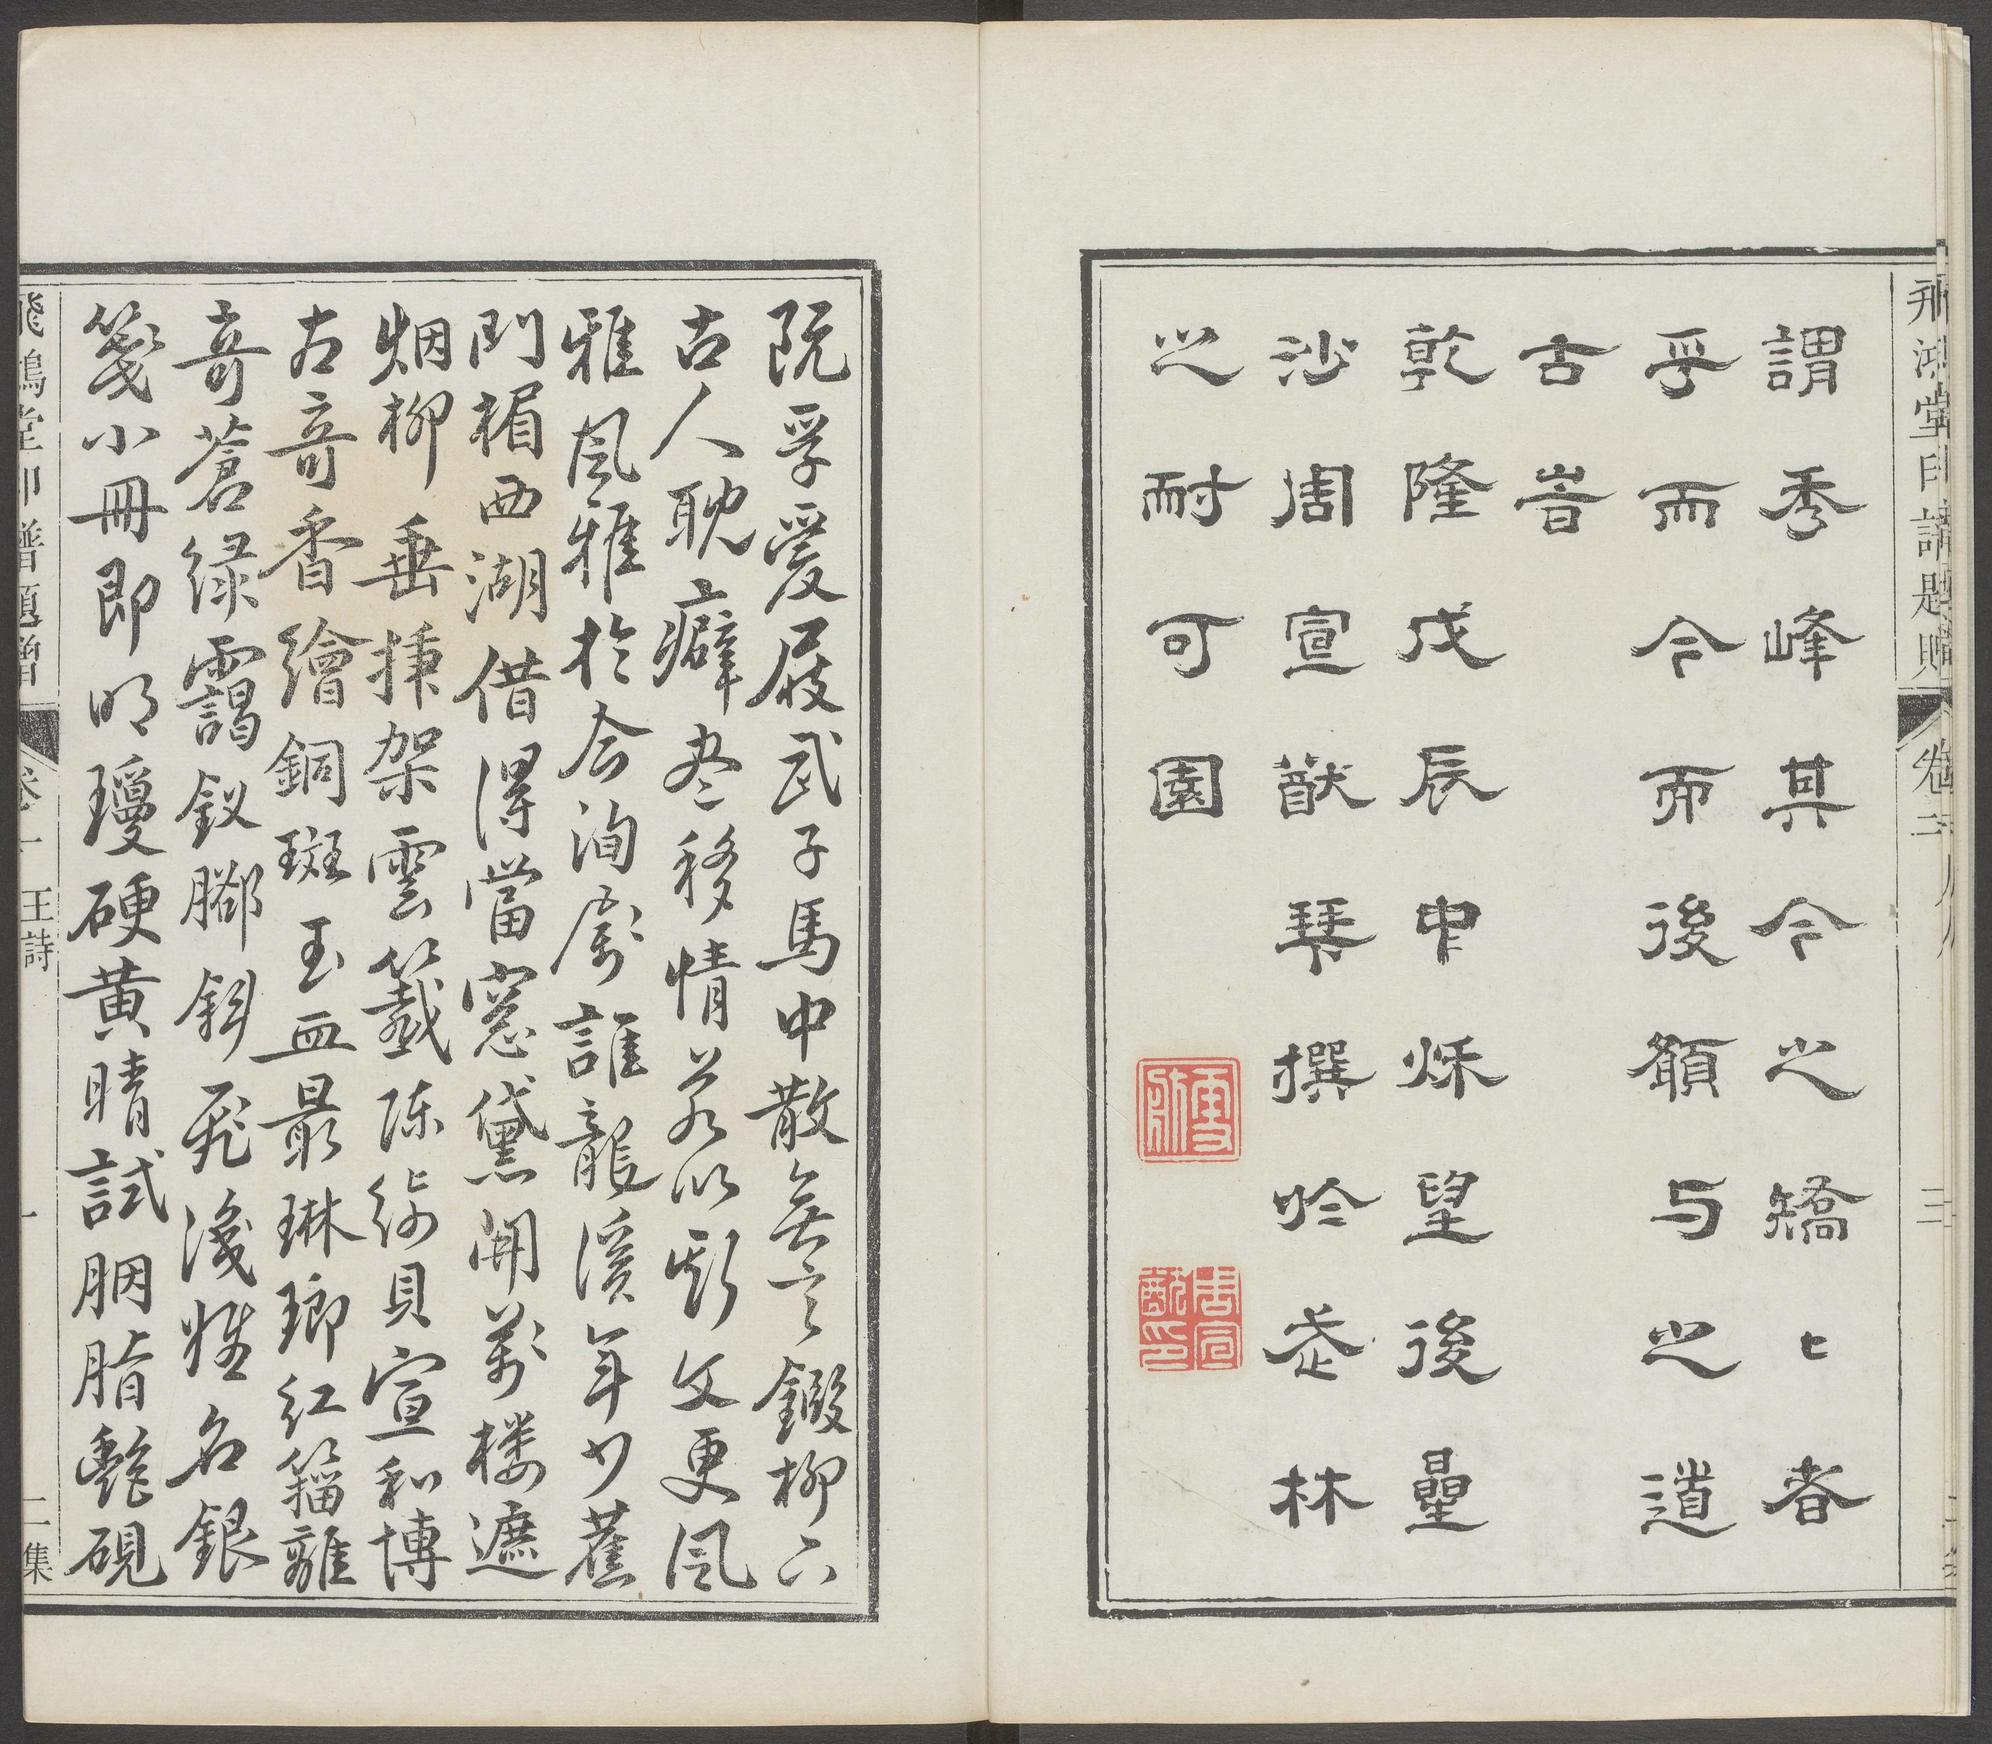 飛鴻堂印譜題贈 卷二 三
謂秀峰其今之矯〻者
乎而今而後願与之道
古昔
乾隆戊辰中秌望後壘
沙周宣猷琴撰吟並林
之耐可園
阮孚愛屐武子馬中散無言鍛柳下
古人耽癖盡移情若以彫文更風
雅風雅於今洵屬誰龍溪年少舊
門楣西湖借得當窓黛開萬樓遮
烟柳垂揷架雲籤陳綈貝宣和博
古奇香繪銅斑玉血最琳瑯紅籀離
奇蒼緑靄釵腳斜飛淺姓名銀
箋小冊即明瓊硬黄晴試胭脂艶硯
飛鴻堂印譜題贈 卷一 王詩 一 二集